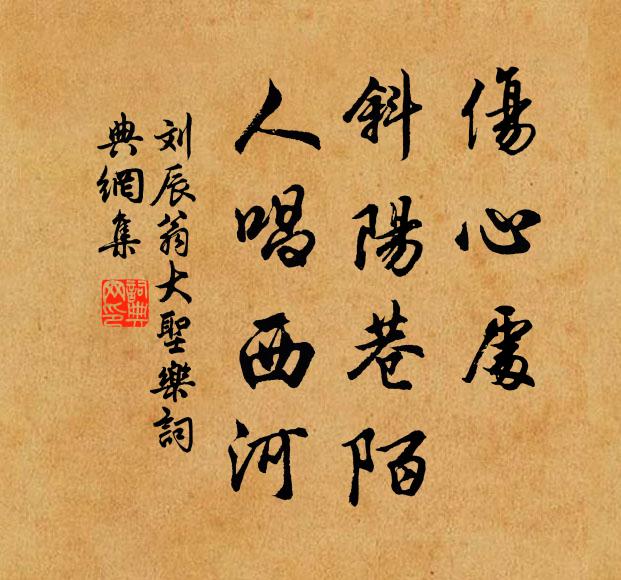 傷心處
斜陽巷陌
人唱西河
刘辰翁大聖樂詞
典網集
詞典網印